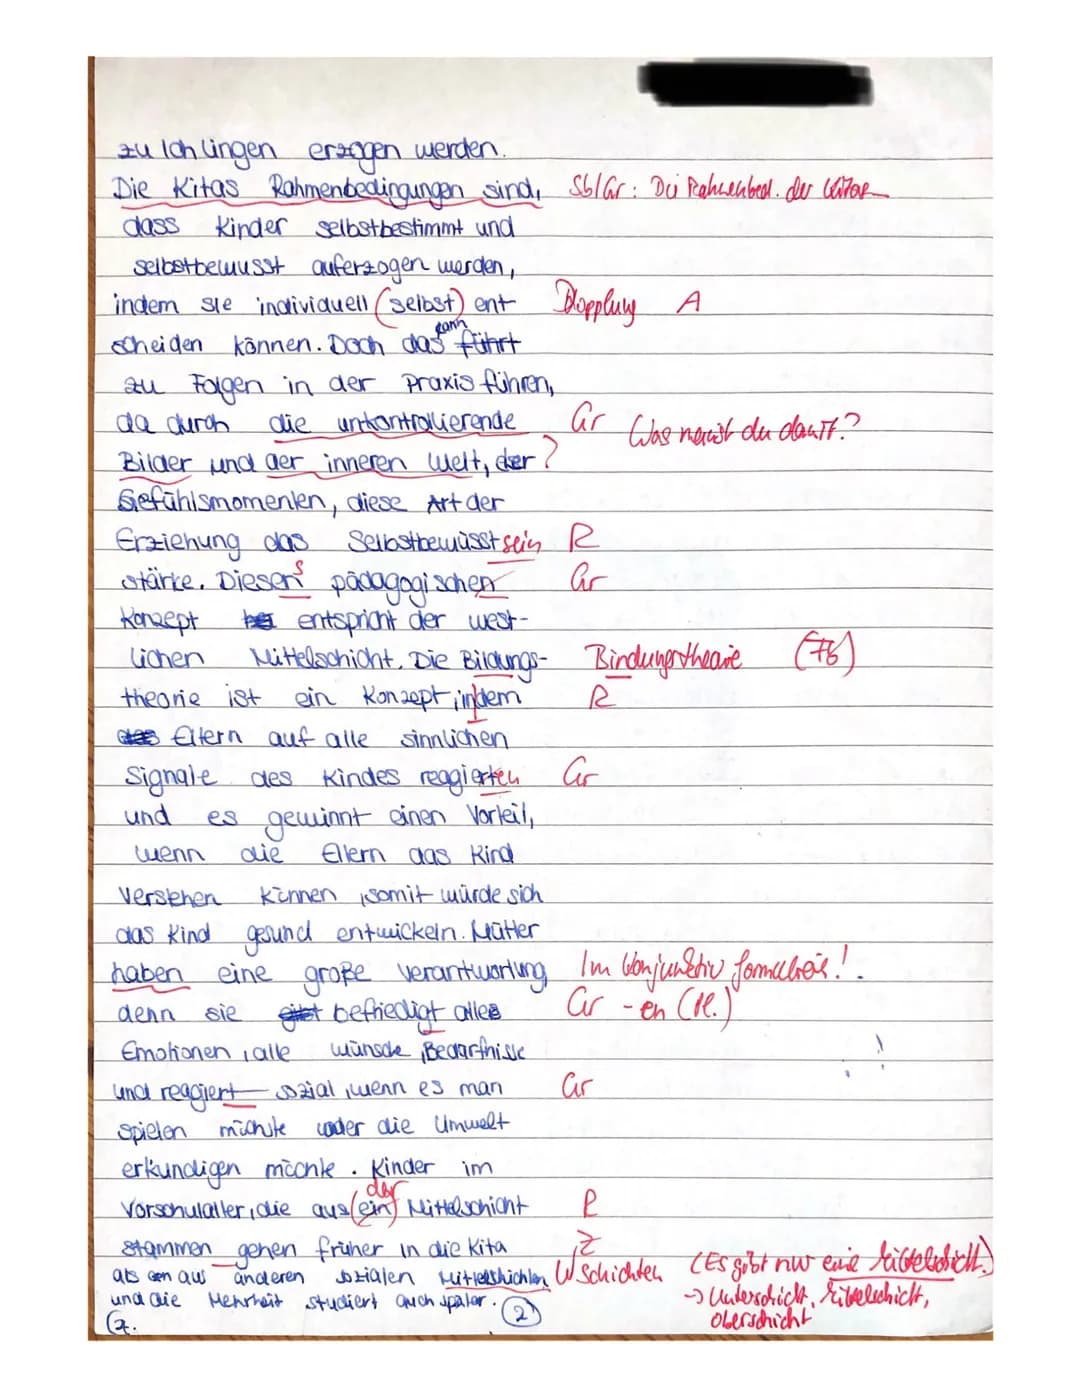 zu Ichlingen erzogen werden.
Die Kitas Rahmenbedingungen sind, Sb/Gr: Die Rahmenbed. der Kitas
dass Kinder selbstbestimmt und
selbstbewusst auferzogen werden,
indem sie individuell (selbst) ent Dopplung A
scheiden können. Doch das kann führt
zu Folgen in der Praxis führen,
da durch die unkontrollierende Gr Was meinst du damit?
Bilder und der inneren Welt, der ?
Gefühlsmomenten, diese Art der
Erziehung das Selbstbewusstsein R
stärke. Dieses pädagogischen Gr
Konzept entspricht der west-
lichen Mittelschicht. Die Bildungs- Bindungstheorie (Fb)
theorie ist ein Konzept, indem R
Eltern auf alle sinnlichen
Signale des Kindes reagierten Gr
und es gewinnt einen Vorteil,
wenn die Eltern das Kind
verstehen können, somit würde sich
das Kind gesund entwickeln. Mütter
haben eine große Verantwortung, Im Konjunktiv formulieren!
denn sie befriedigt alle Gr -en (Pl.)
Emotionen, alle wünsche, Bedürfnisse
und reagiert sozial, wenn es man Gr
spielen möchte oder die Umwelt
erkundigen möchte. Kinder im
Vorschulalter, die aus (ein) der Mittelschicht R
stammen gehen früher in die Kita Z
als aus anderen sozialen Mittelschichten W Schichten (Es gibt nur eine Mittelschicht.)
und die Mehrheit studiert auch später. (2) → Unterschicht, Mittelschicht,
Oberschicht